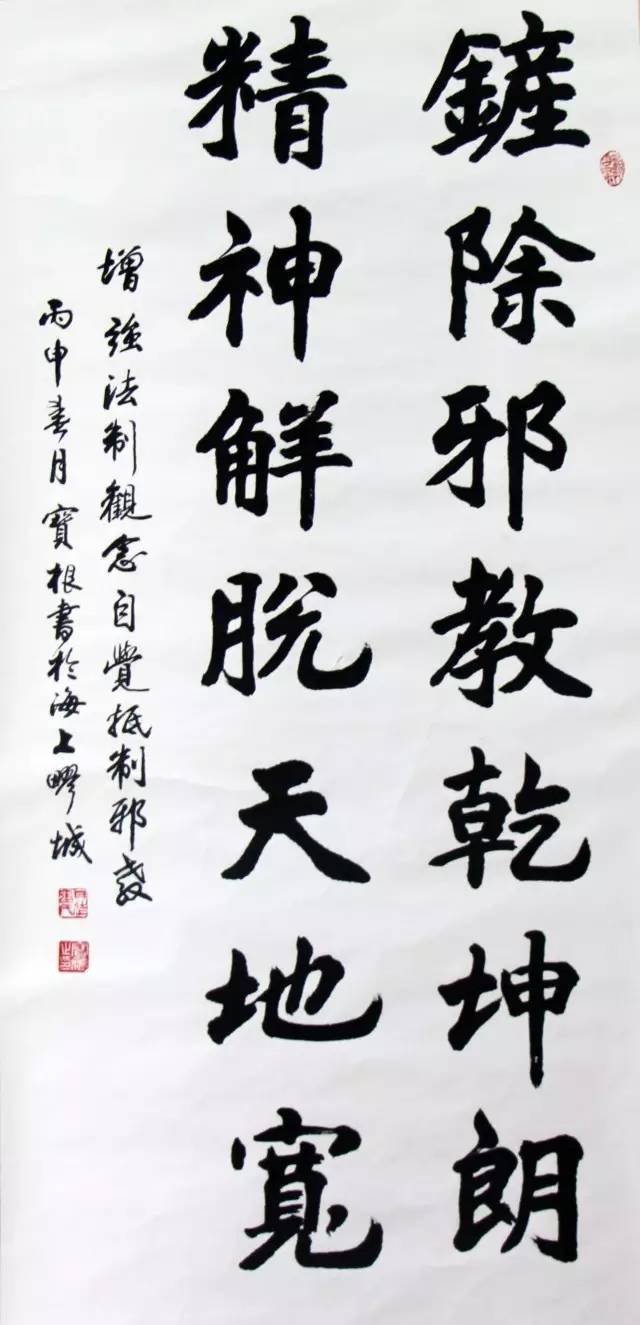 鏟除邪教乾坤朗
精神解脱天地寬
增強法制觀念自覺抵制邪教
丙申春月寶根書於海上疁城